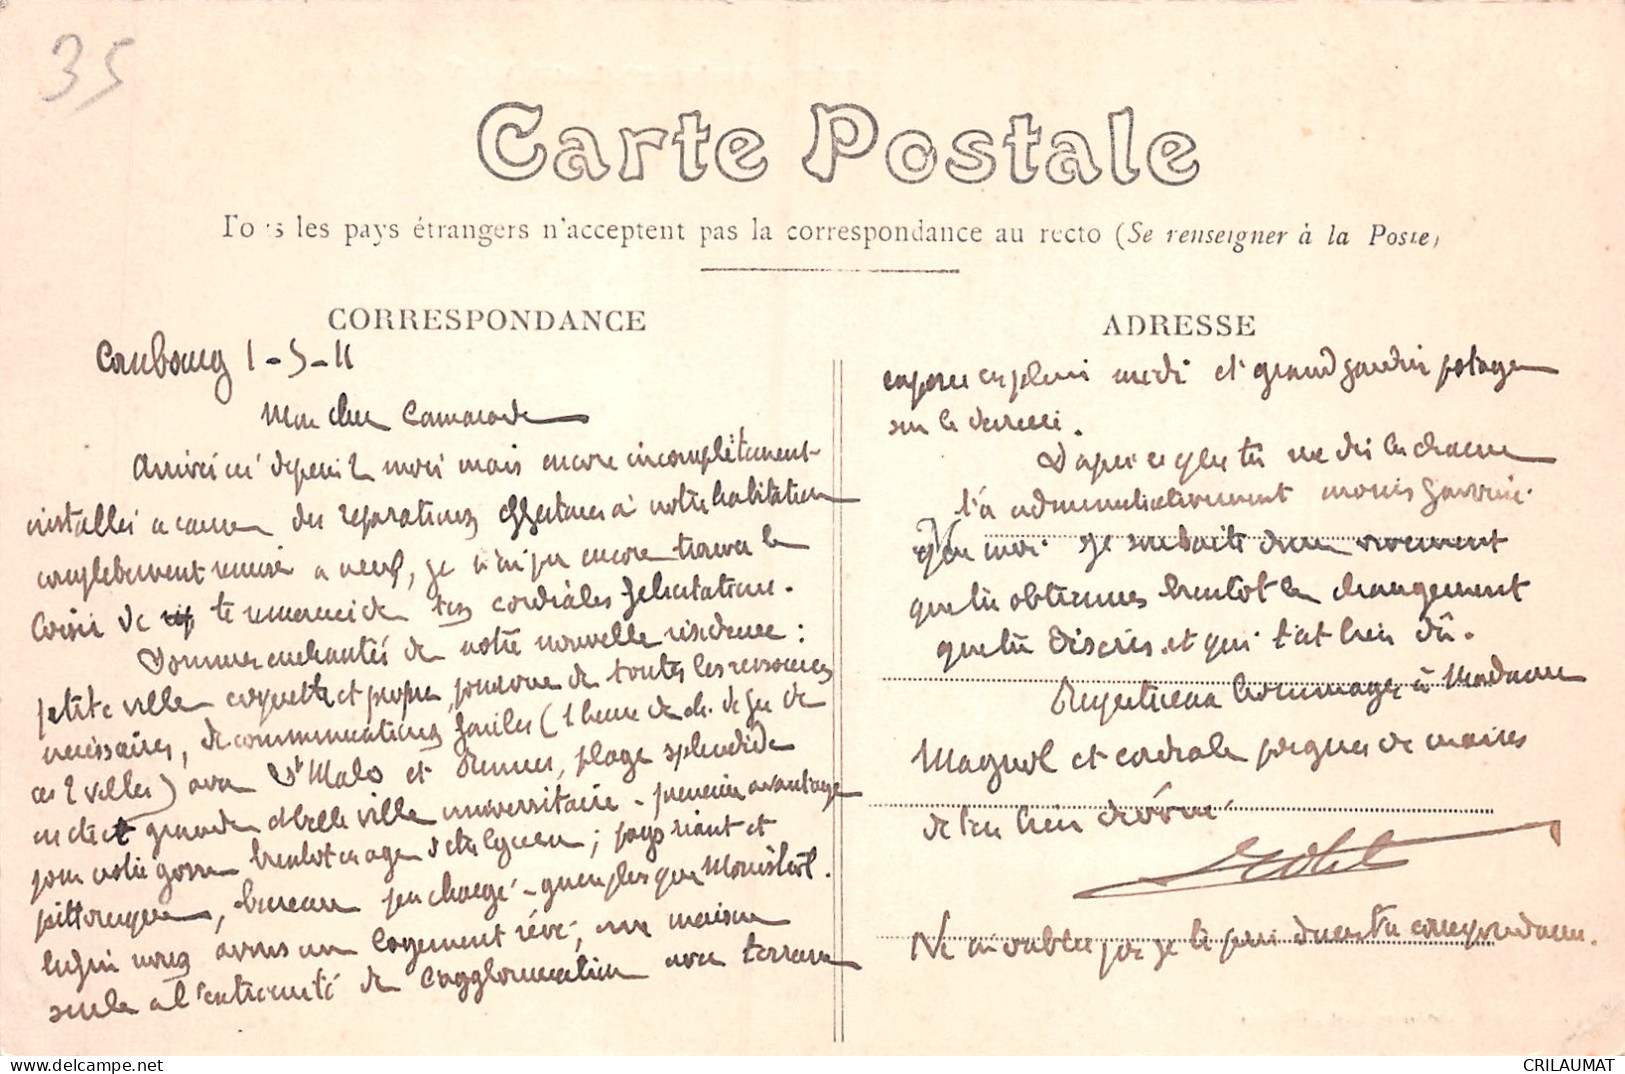 35
Carte Postale
Tous les pays étrangers n'acceptent pas la correspondance au recto (Se renseigner à la Poste)
CORRESPONDANCE
ADRESSE
Combourg 1-5-11
Mon cher Camarade
Arrivés ici depuis 2 mois mais encore incomplètement
installés a cause des réparations effectuées à notre habitation
complètement remise a neuf, je n'ai pu encore trouver le
loisir de te remercier de tes cordiales félicitations.
Sommes enchantés de notre nouvelle résidence :
petite ville coquette et propre, pourvue de toutes les ressources
nécessaires, de communications faciles (1 heure de ch. de fer de
ces 2 villes) avec St Malo et Rennes, plage splendide
et grande et belle ville universitaire - précieux avantage
pour notre gosse bientot en age d'etre lycéen ; pays riant et
pittoresque, bureau peu chargé - guère plus que
Enfin nous avons un logement rêvé, une maison
seule à l'extrémité de l'agglomération avec terrasse
exposée en plein midi et grand jardin potager
sur le derrière.
D'après ce que tu me dis la chance
t'a administrativement moins favorisé
que moi. Je souhaite donc vivement
que tu obtiennes bientot le changement
que tu désires et qui t'est bien dû.
Respectueux hommages à Madame
et cordiale poignée de mains
de ton bien dévoué
Ne m'oublie pas je te prie dans ta correspondance.
CRILAUMAT